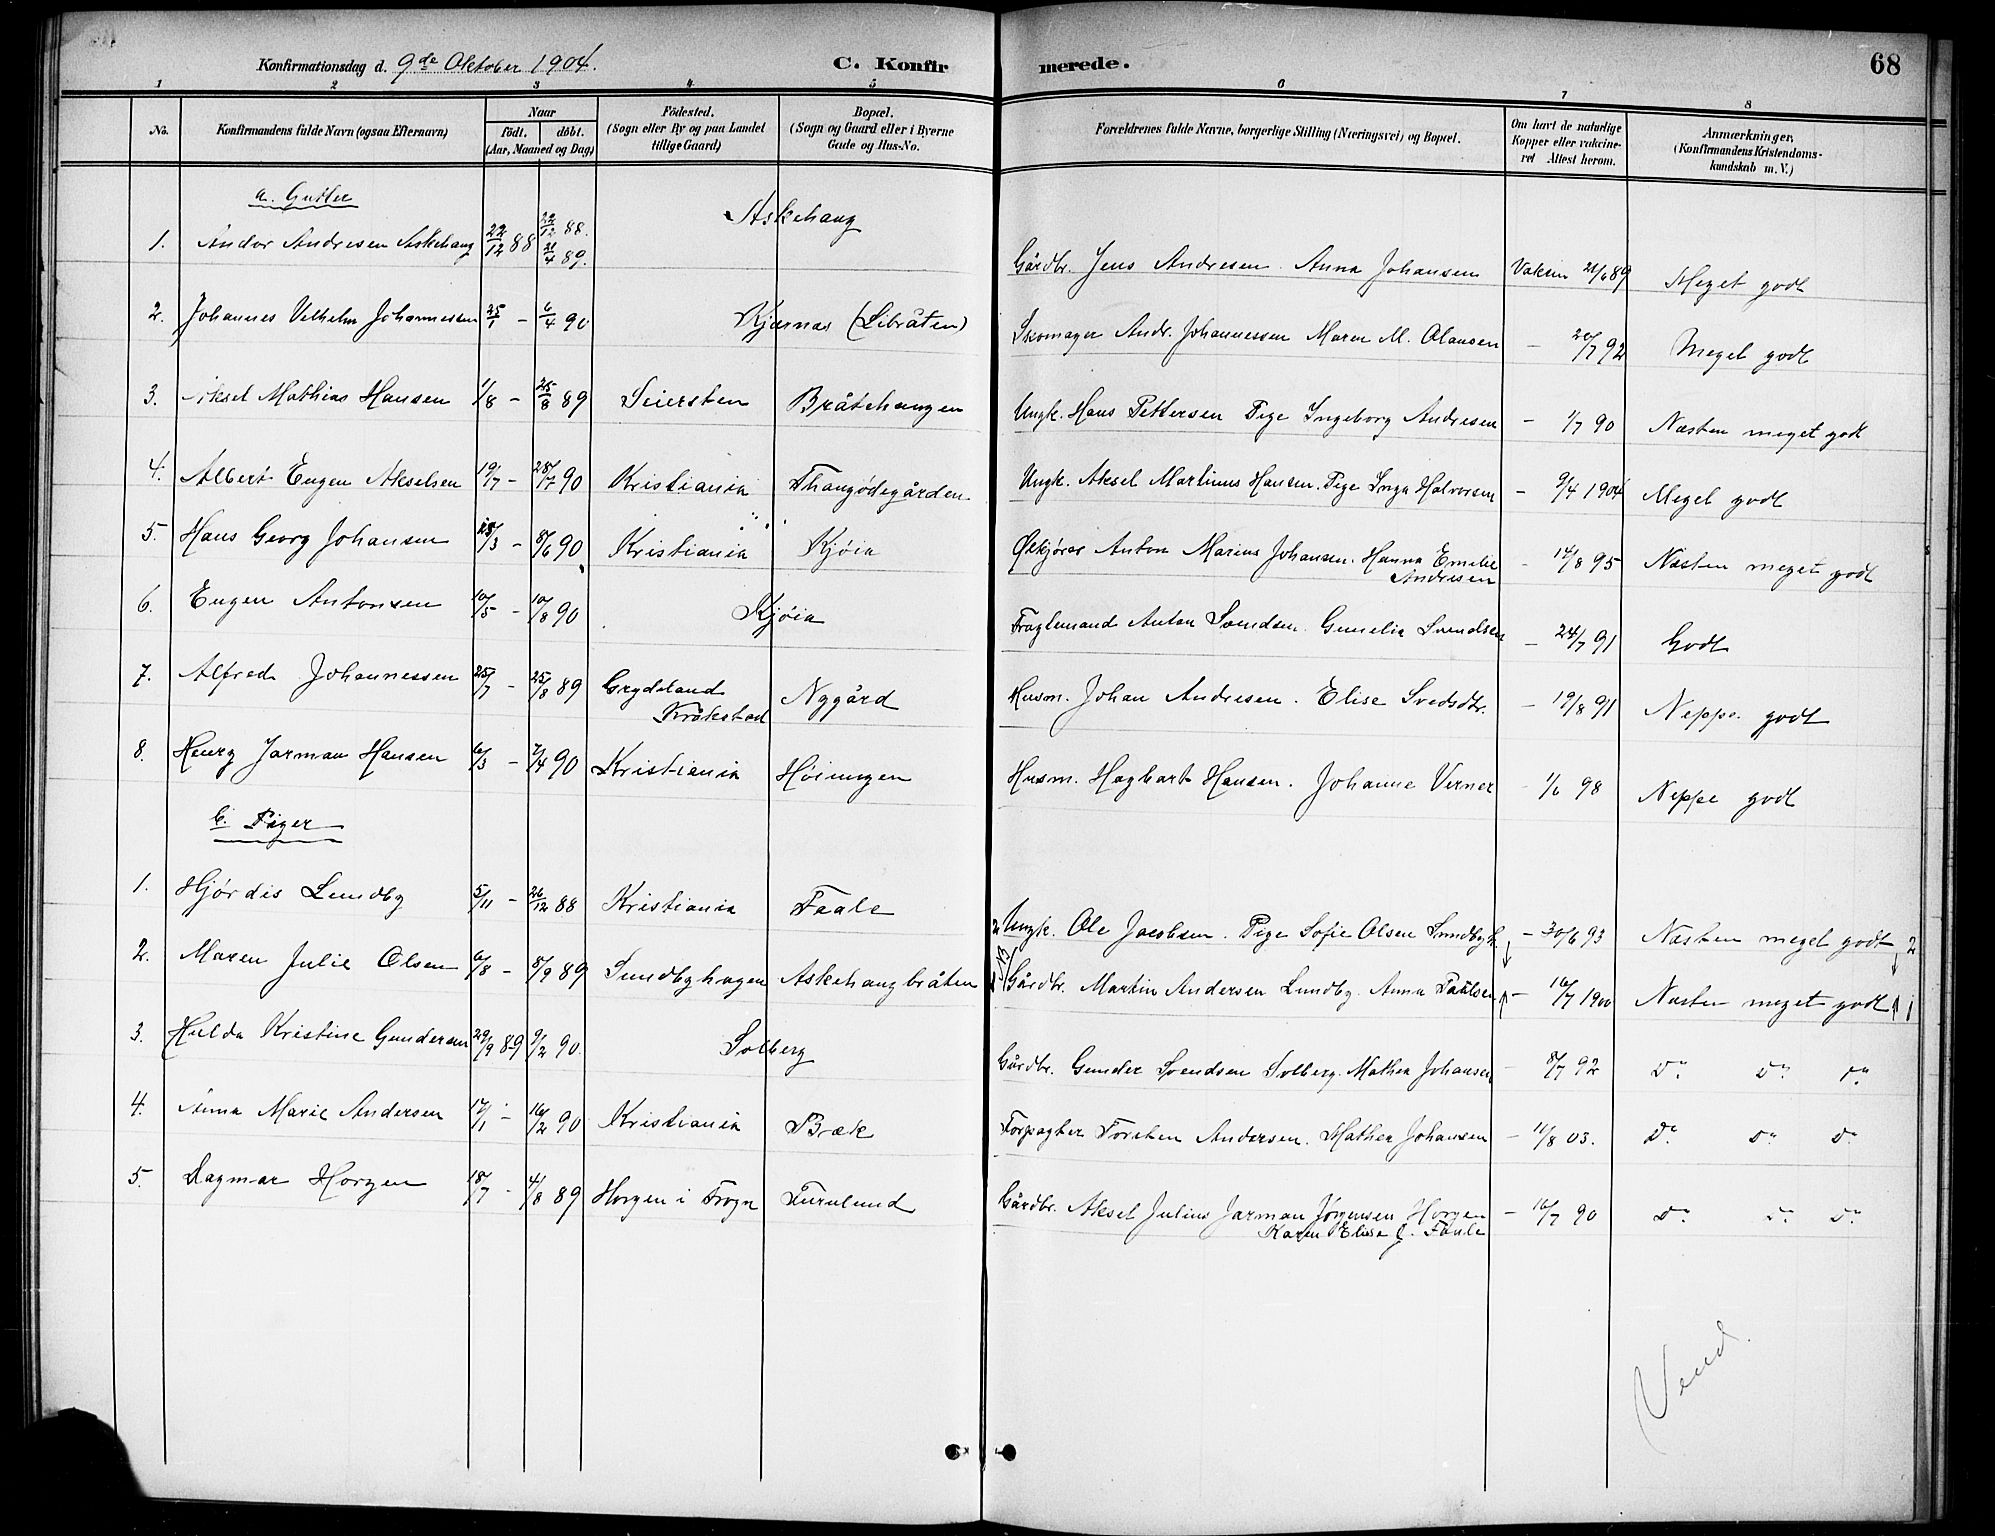 Konfirmationsdag d. 9de Oktober 1904.
C. Konfirmerede.
68
1 2 3 4 5 6 7 8
No.
Konfirmandens fulde Navn (ogsaa Efternavn)
Naar
födt. döbt.
(Aar, Maaned og Dag)
Födested.
(Sogn eller By og paa Landet
tillige Gaard)
Bopæl.
(Sogn og Gaard eller i Byerne
Gade og Hus-No.
Forældrenes fulde Navne, borgerlige Stilling (Næringsvei) og Bopæl.
Om havt de naturlige
Kopper eller vakcine-
ret Attest herom.
Anmærkninger.
(Konfirmandens Kristendoms-
kundskab m. V.)
a. Gutter
1. Andor Andresen Askehaug 22/12 88 22/12 88. 21/4 89. Askehaug Gårdbr. Jens Andresen. Anna Johansen Vaksin 21/6 89 Meget godt
2. Johannes Vilhelm Johannessen 25/1 - 6/4 90 Kjærnas (Libråten) Skomager Andr. Johannessen Maren M. Olausen - 20/7 92 Meget godt
3. Aksel Mathias Hansen 1/8 - 25/8 89 Seiersten Bråtehaugen Ungk. Hans Pettersen Pige Ingeborg Andresen - 1/7 90 Næsten meget godt
4. Albert Eugen Akselsen 19/7 - 28/7 90 Kristiania Ungk. Aksel Martinus Hansen. Pige Inga Halvorsen - 9/4 1904 Meget godt
5. Hans Georg Johansen /3 - 8/6 90 Kristiania Kjøia Ølkjører Anton Marius Johansen. Hanna Emilie
Andresen - 14/8 95 Næsten meget godt
6. Eugen Antonsen 10/5 - 10/8 90 Kjøia Anton Svendsen. Gunelia Svendsen - 24/7 91 Godt
7. Alfred Johannessen 25/7 - 25/8 89 Grydeland
Kråkstad Nygård Husm. Johan Andresen. Elise Svedsdtr. - 19/8 91 Neppe godt
8. Henry Jarman Hansen 6/3 - 7/4 90 Kristiania Høiungen Husm. Hagbart Hansen. Johanne Verner - 1/6 98 Neppe godt
b. Piger
1. Hjørdis Lundby 5/11 - 26/12 88 Kristiania Faale 2 Ungk. Ole Jacobsen. Pige Sofie Olsen Sundbyh. - 30/6 93 Næsten meget godt 2
NB
2. Maren Julie Olsen 6/8 - 8/9 89 Sundbyhagen Askehaugbråten 1 Gårdbr. Martin Andersen Lundby. Anna Paulsen - 16/7 1900 Næsten meget godt 1
3. Hulda Kristine Gundersen 29/9 89 9/2 90. Solberg Gårdbr. Gunder Svendsen Solberg. Mathea Johansen - 8/7 92 Do Do Do
4. Anna Marie Andersen 17/1 - 16/2 90 Kristiania Bræk Forpagter Torsten Andersen. Mathea Johansen - 11/8 03. Do Do Do
5. Dagmar Horgen 18/7 - 4/8 89 Horgen i Frogn Furulund Gårdbr. Aksel Julius Jarman Jørgensen Horgen
Karen Elise J. Faale - 16/7 90 Do Do Do
Vend.